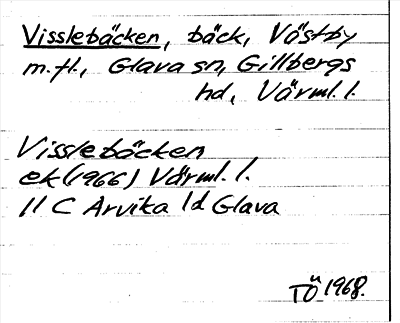 Visslebäcken, bäck, Västby
m.fl., Glava sn, Gillbergs
hd, Värml. l.
Visslebäcken
ek (1966) Värml. l.
11 C Arvika 1d Glava
TÖ 1968.